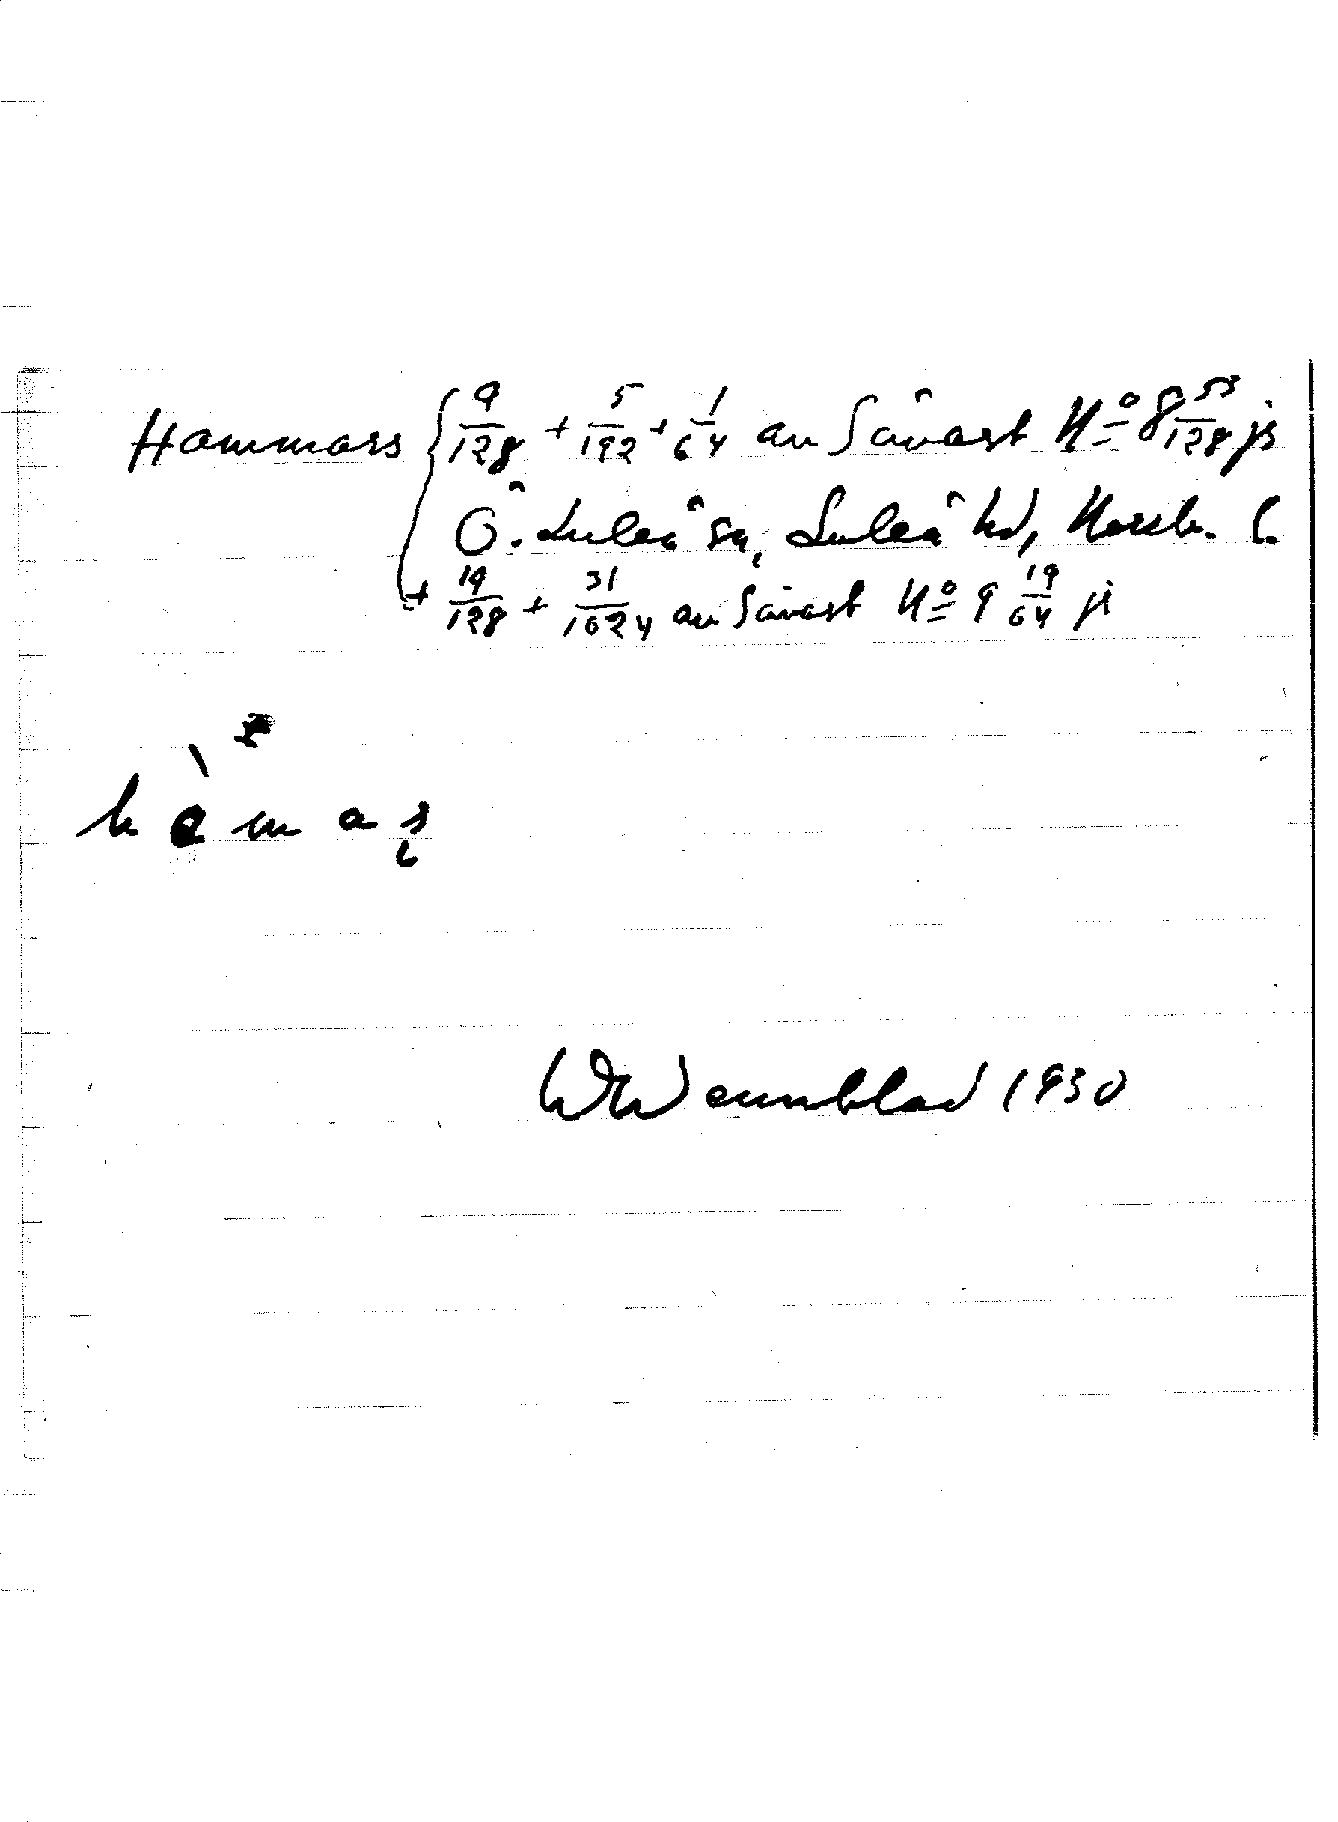 Hammars { 9/128 + 5/192 + 1/64 av Sävast No 8 53/128 js
Ö. Luleå sn, Luleå hd, Norrb. l.
+ 19/128 + 31/1024 av Sävast No 9 19/64 js
h è m a ș
W Wennblad 1930